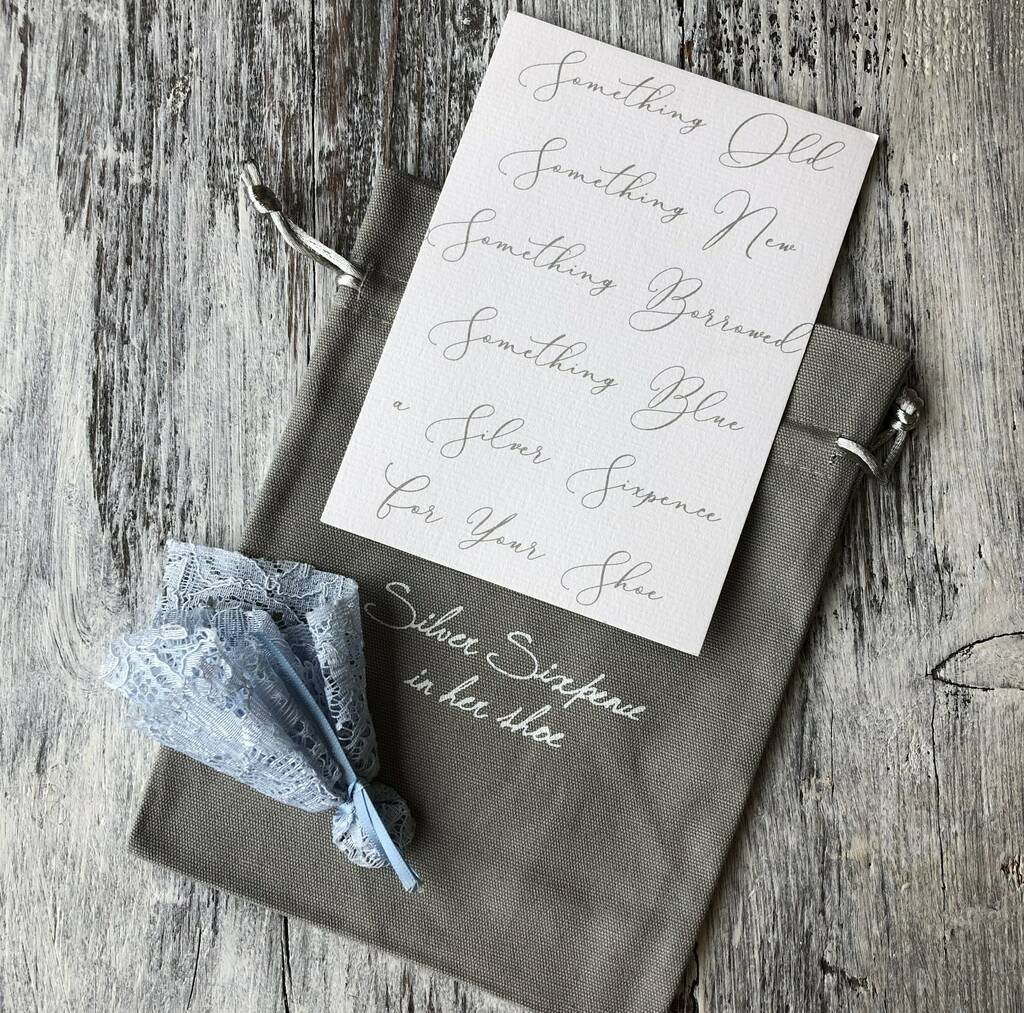 Something Old
Something New
Something Borrowed
Something Blue
a Silver Sixpence
For Your Shoe
Silver Sixpence
in her shoe